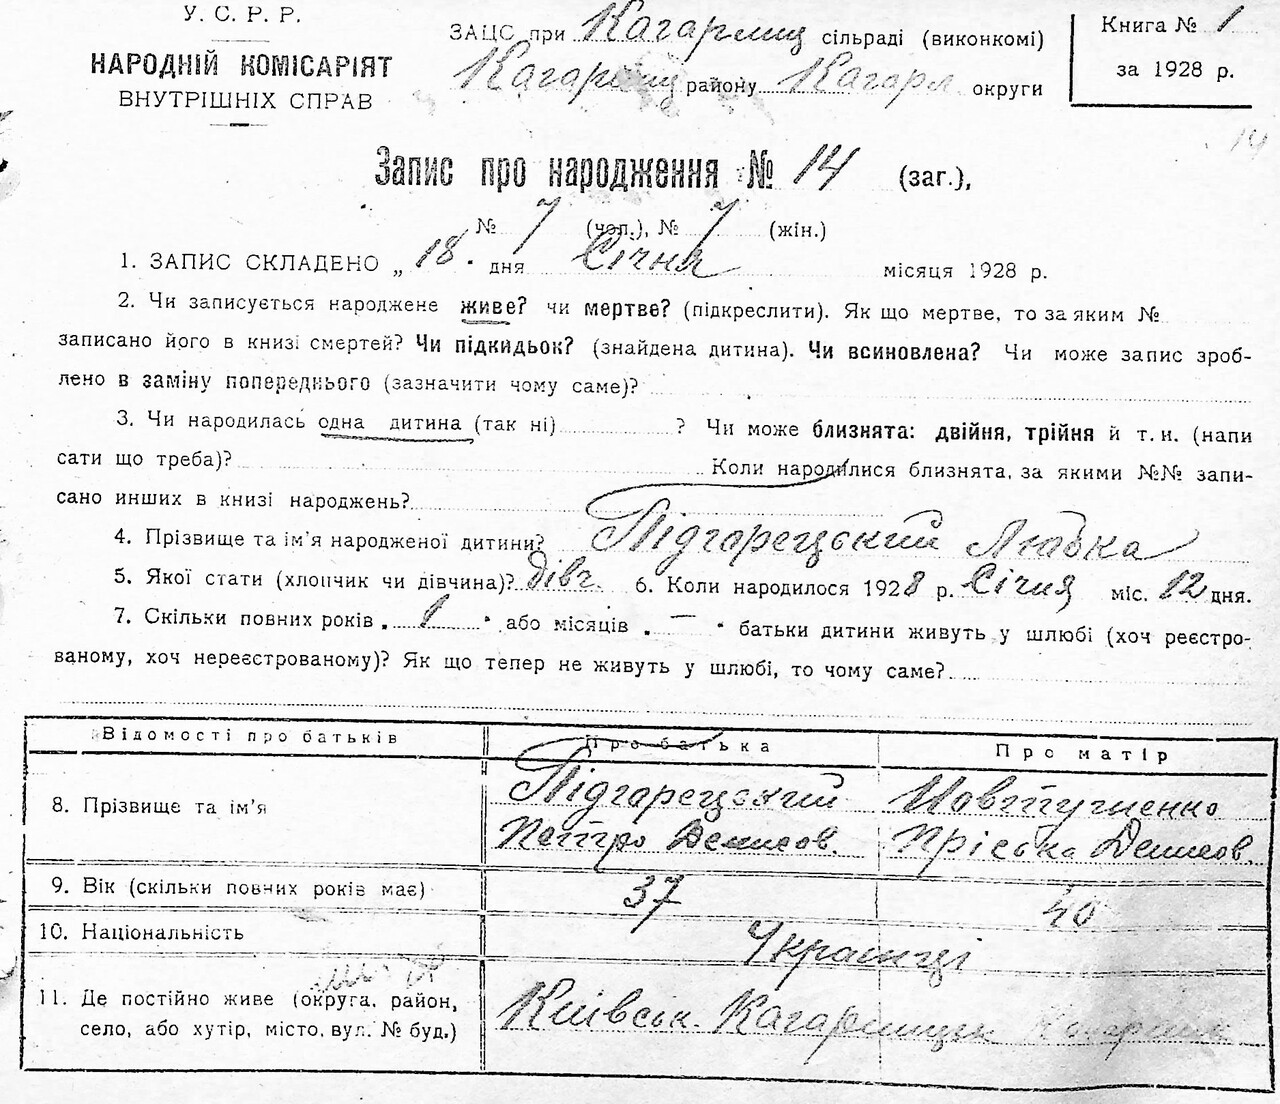 У. С. Р. Р.
НАРОДНІЙ КОМІСАРІЯТ
ВНУТРІШНІХ СПРАВ
ЗАЦС при Кагарлиц сільраді (виконкомі)
Кагарлиц району Кагарл округи
Книга № 1
за 1928 р.
14
Запис про народження № 14 (заг.),
№ 7 (чол.), № 7 (жін.)
1. ЗАПИС СКЛАДЕНО „ 18 " дня Січня місяця 1928 р.
2. Чи записується народжене живе? чи мертве? (підкреслити). Як що мертве, то за яким №
записано його в книзі смертей? Чи підкидьок? (знайдена дитина). Чи всиновлена? Чи може запис зроб-
лено в заміну попереднього (зазначити чому саме)?
3. Чи народилась одна дитина (так ні) ? Чи може близнята: двійня, трійня й т. н. (напи
сати що треба)? Коли народилися близнята, за якими №№ запи-
сано инших в книзі народжень?
4. Прізвище та ім'я народженої дитини? Підгарецський Любка
5. Якої стати (хлопчик чи дівчина)? дівч. 6. Коли народилося 1928 р. Січня міс. 12 дня.
7. Скільки повних років 1 або місяців — батьки дитини живуть у шлюбі (хоч реєстро-
ваному, хоч нереєстрованому)? Як що тепер не живуть у шлюбі, то чому саме?
Відомості про батьків Про батька Про матір
8. Прізвище та ім'я Підгарецський Петро Денисов. Прiська Денисов.
9. Вік (скільки повних років має) 37 40
10. Національність Українці
11. Де постійно живе (округа, район,
село, або хутір, місто, вул. № буд.) Київськ. Кагарлицьк